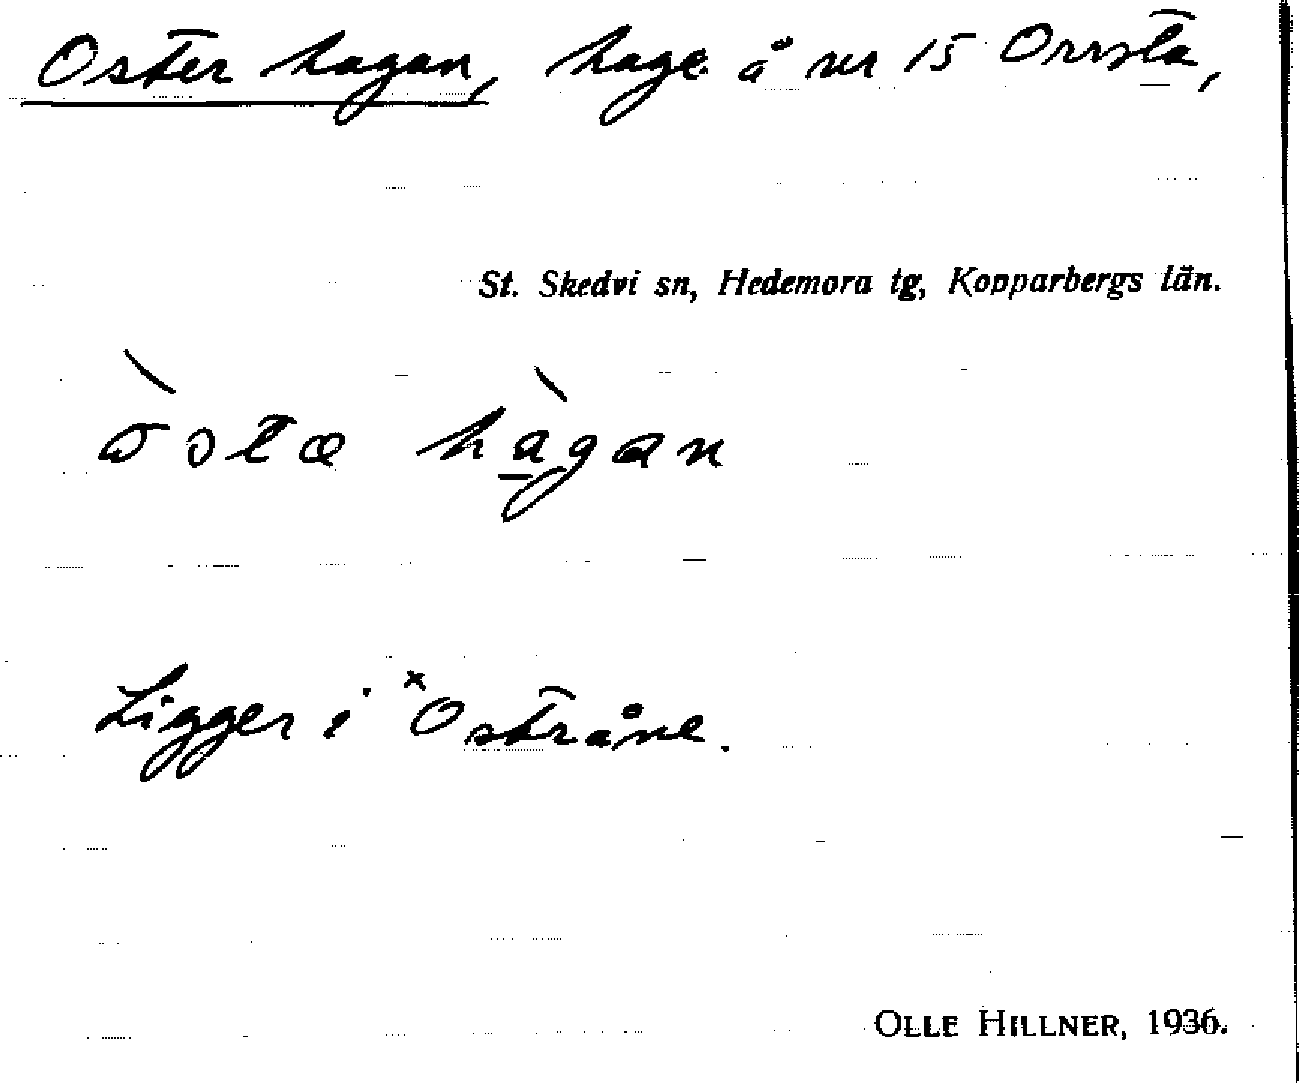 Oster hagan, hage å nr 15 Orrsta,
St. Skedvi sn, Hedemora tg, Kopparbergs län.
hàgan
Ligger i ˣOstråne.
OLLE HILLNER, 1936.